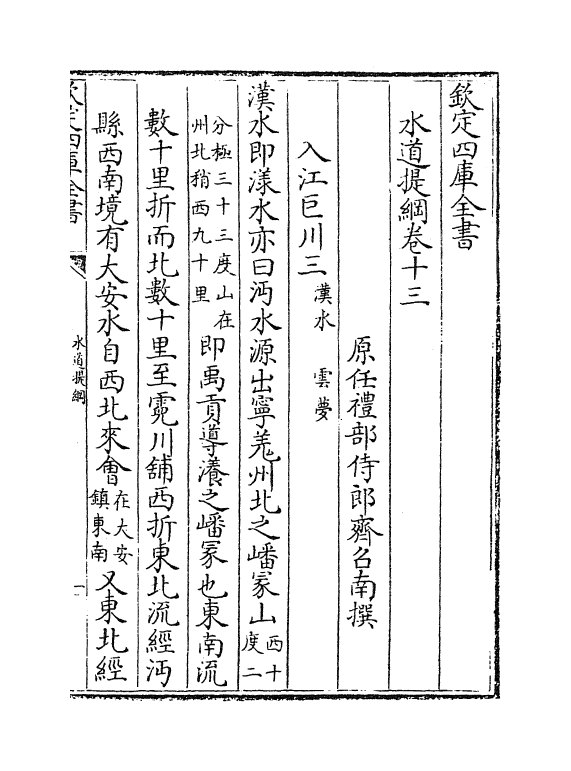 欽定四庫全書
水道提綱卷十三
原任禮部侍郎齊召南撰
入江巨川三 漢水 雲夢
漢水即漾水亦曰沔水源出寧羗州北之嶓冢山西十度二
分極三十三度山在州北稍西九十里即禹貢導瀁之嶓冢也東南流
數十里折而北數十里至霓川舖西折東北流經沔
縣西南境有大安水自西北來會在大安鎮東南又東北經
欽定四庫全書
水道提綱
一